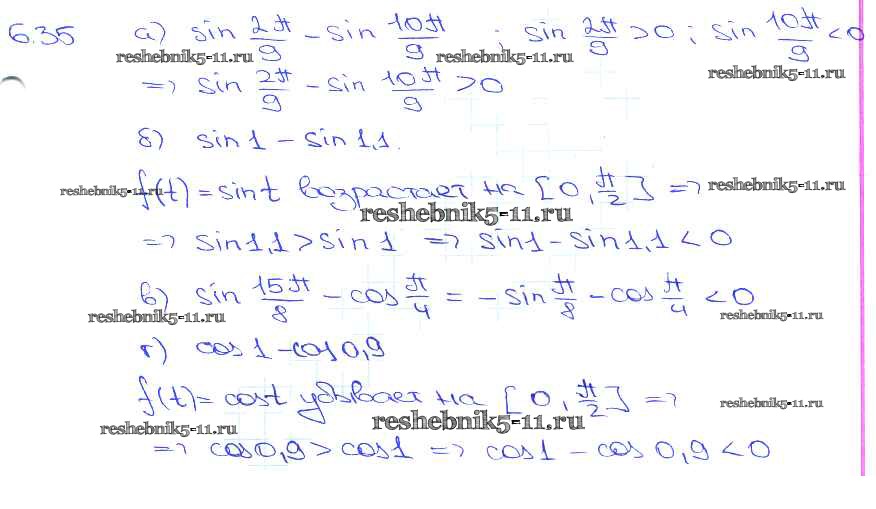 6.35 а) sin 2π/9 - sin 10π/9 ; sin 2π/9 > 0 ; sin 10π/9 < 0
reshebnik5-11.ru reshebnik5-11.ru reshebnik5-11.ru
=> sin 2π/9 - sin 10π/9 > 0
б) sin 1 - sin 1,1.
f(t) = sin t возрастает на [0, π/2] =>
reshebnik5-11.ru reshebnik5-11.ru reshebnik5-11.ru
=> sin 1,1 > sin 1 => sin 1 - sin 1,1 < 0
в) sin 15π/8 - cos π/4 = - sin π/8 - cos π/4 < 0
reshebnik5-11.ru reshebnik5-11.ru
г) cos 1 - cos 0,9
f(t) = cos t убывает на [0, π/2] =>
reshebnik5-11.ru reshebnik5-11.ru reshebnik5-11.ru
=> cos 0,9 > cos 1 => cos 1 - cos 0,9 < 0